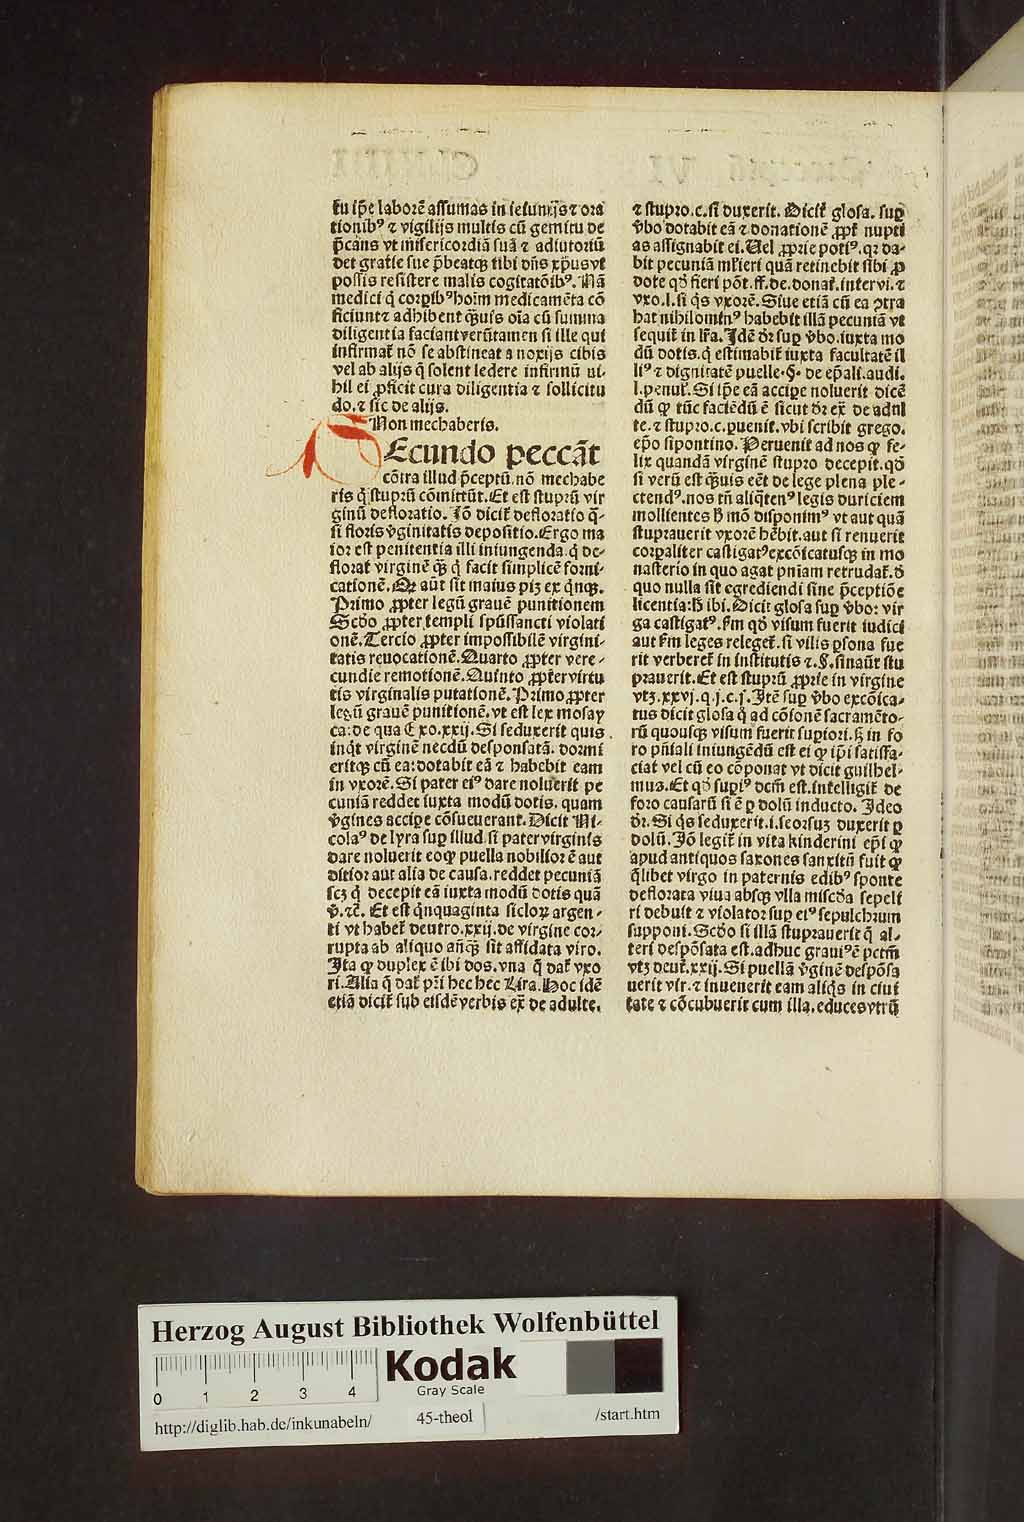 tu ip̄e laborē assumas in ieiunijs ⁊ ora
tionibꝰ ⁊ vigilijs multis cū gemitu de
p̄cans vt misericordiā suā ⁊ adiutoriū
det gratie sue p̄beatqꝫ tibi dn̄s xp̄us vt
possis resistere malis cogitatōibꝰ. Nā
medici q̇ corꝑibꝰ hoīm medicamēta cō
ficiunt ⁊ adhibent qꝫuis oīa cū summa
diligentia faciant verūtamen si ille qui
infirmat᷑ nō se abstineat a noxijs cibis
vel ab alijs q̄ solent ledere infirmū ni-
hil ei ꝓficit cura diligentia ⁊ sollicitu
do. ⁊ sic de alijs.
Non mechaberis.
Ecundo peccāt
cōtra illud p̄ceptū. nō mechabe
ris q̇ stuprū cōmittūt. Et est stuprū vir
ginū defloratio. Iō dicit᷑ defloratio q̄-
si floris v̓ginitatis depositio. Ergo ma
ior est penitentia illi iniungenda q̇ de-
florat virginē qꝫ q̇ facit simplicē forni-
cationē. Qꝛ aūt sit maius pꝫ ex q̇nqꝫ.
Primo ꝓpter legū grauē punitionem
Scdo ꝓpter templi spūssancti violati
onē. Tercio ꝓpter impossibilē virgini-
tatis reuocationē. Quarto ꝓpter vere-
cundie remotionē. Quinto ꝓpter virtu
tis virginalis putationē. Primo ꝓpter
legū grauē punitionē. vt est lex mosay
ca: de qua Exo. xxij. Si seduxerit quis
inqt virginē necdū desponsatā. dormi
eritqꝫ cū ea: dotabit eā ⁊ habebit eam
in vxorē. Si pater eiꝰ dare noluerit pe
cuniā reddet iuxta modū dotis. quam
v̓gines acciꝑe cōsueuerant. Dicit Ni-
colaꝰ de lyra suꝑ illud. si pater virginis
dare noluerit eo ꝙ puella nobilior ē aut
ditior aut alia de causa. reddet pecuniā
scꝫ q̇ decepit eā iuxta modū dotis quā
v̓. ⁊c̄. Et est q̇nquaginta sicloꝝ argen-
ti vt habet᷑ deutro. xxij. de virgine cor-
rupta ab aliquo anqꝫ sit affidata viro.
Ita ꝙ duplex ē ibi dos. vna q̄ dat᷑ vxo
ri. Alia q̄ dat᷑ pr̄i hec hec Lira. Hoc idē
etiā dicit᷑ sub eisdē verbis ex̄ de adulte.
⁊ stupro. c. si duxerit. Dicit᷑ glosa. suꝑ
v̓bo dotabit eā ⁊ donationē ꝓpt᷑ nupti
as assignabit ei. Uel ꝓprie potiꝰ. qꝛ da-
bit pecuniā mr̄ieri quā retinebit sibi ꝓ
dote qđ fieri pōt. ff. de. donat᷑. inter vi. ⁊
vxo. l. si q̇s vxorē. Siue etiā cū ea ꝯtra
hat nihilominꝰ habebit illā pecuniā vt
sequit᷑ in lr̄a. Idē dr̄ suꝑ v̓bo. iuxta mo
dū dotis. q̇ estimabit᷑ iuxta facultatē il
liꝰ ⁊ dignitatē puelle. §. de ep̄ali. audi.
l. penul᷑. Si ip̄e eā acciꝑe noluerit dicē
dū ꝙ tūc faciēdū ē sicut dr̄ ex̄ de adul
te. ⁊ stupro. c. ꝑuenit. vbi scribit grego.
ep̄o sipontino. Peruenit ad nos ꝙ fe-
lix quandā virginē stupro decepit. qđ
si verū est qꝫuis eēt de lege plena ple-
ctendꝰ. nos tn̄ aliq̄tenꝰ legis duriciem
mollientes h̄ mō disponimꝰ vt aut quā
stuprauerit vxorē hēbit. aut si renuerit
corꝑaliter castigatꝰ excōicatusqꝫ in mo
nasterio in quo agat pn̄iam retrudat᷑. đ
quo nulla sit egrediendi sine p̄ceptiōe
licentia: h̄ ibi. Dicit glosa suꝑ v̓bo: vir
ga castigatꝰ. fm̄ qđ visum fuerit iudici
aut fm̄ leges releget᷑. si vilis ꝑsona fue
rit verberet᷑ in institutis ⁊. §. sin aūt stu
prauerit. Et est stuprū ꝓprie in virgine
vtꝫ. xxvj. q. j. c. j. Itē suꝑ v̓bo excōica-
tus dicit glosa q̇ ad cōionē sacramēto-
rū quousqꝫ visum fuerit suꝑiori. h̄ in fo
ro pn̄iali iniungēdū est ei ꝙ ip̄i satisfa-
ciat vel cū eo cōponat vt dicit guilhel-
mus. Et qđ suꝑiꝰ dcm̄ est. intelligit᷑ de
foro causarū si ē ꝑ dolū inducto. Ideo
dr̄. Si q̇s seduxerit. i. seorsuꝫ duxerit ꝑ
dolū. Iō legit᷑ in vita kinderini ep̄i ꝙ
apud antiquos saxones sanxitū fuit ꝙ
q̄libet virgo in paternis edibꝰ sponte
deflorata viua absqꝫ vlla misc̄da sepeli
ri debuit ⁊ violator suꝑ eiꝰ sepulchrum
supponi. Scđo si illā stuprauerit q̄ al-
teri despōsata est. adhuc grauiꝰ ē pctm̄
vtꝫ deut᷑. xxij. Si puellā v̓ginē despōsa
uerit vir. ⁊ inuenerit eam aliq̇s in ciui
tate ⁊ cōcubuerit cum illa. educes vtrū
Herzog August Bibliothek Wolfenbüttel
Kodak
Gray Scale
0 1 2 3 4
http://diglib.hab.de/inkunabeln/ 45-theol /start.htm